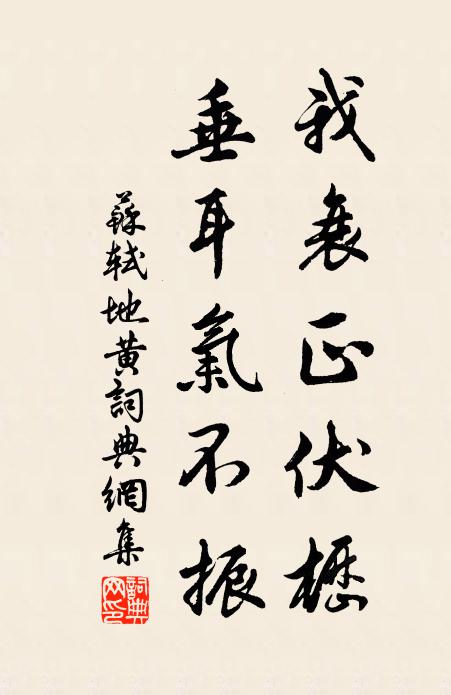 我衰正伏櫪
垂耳氣不振
蘇軾地黃詞典網集
詞典網印